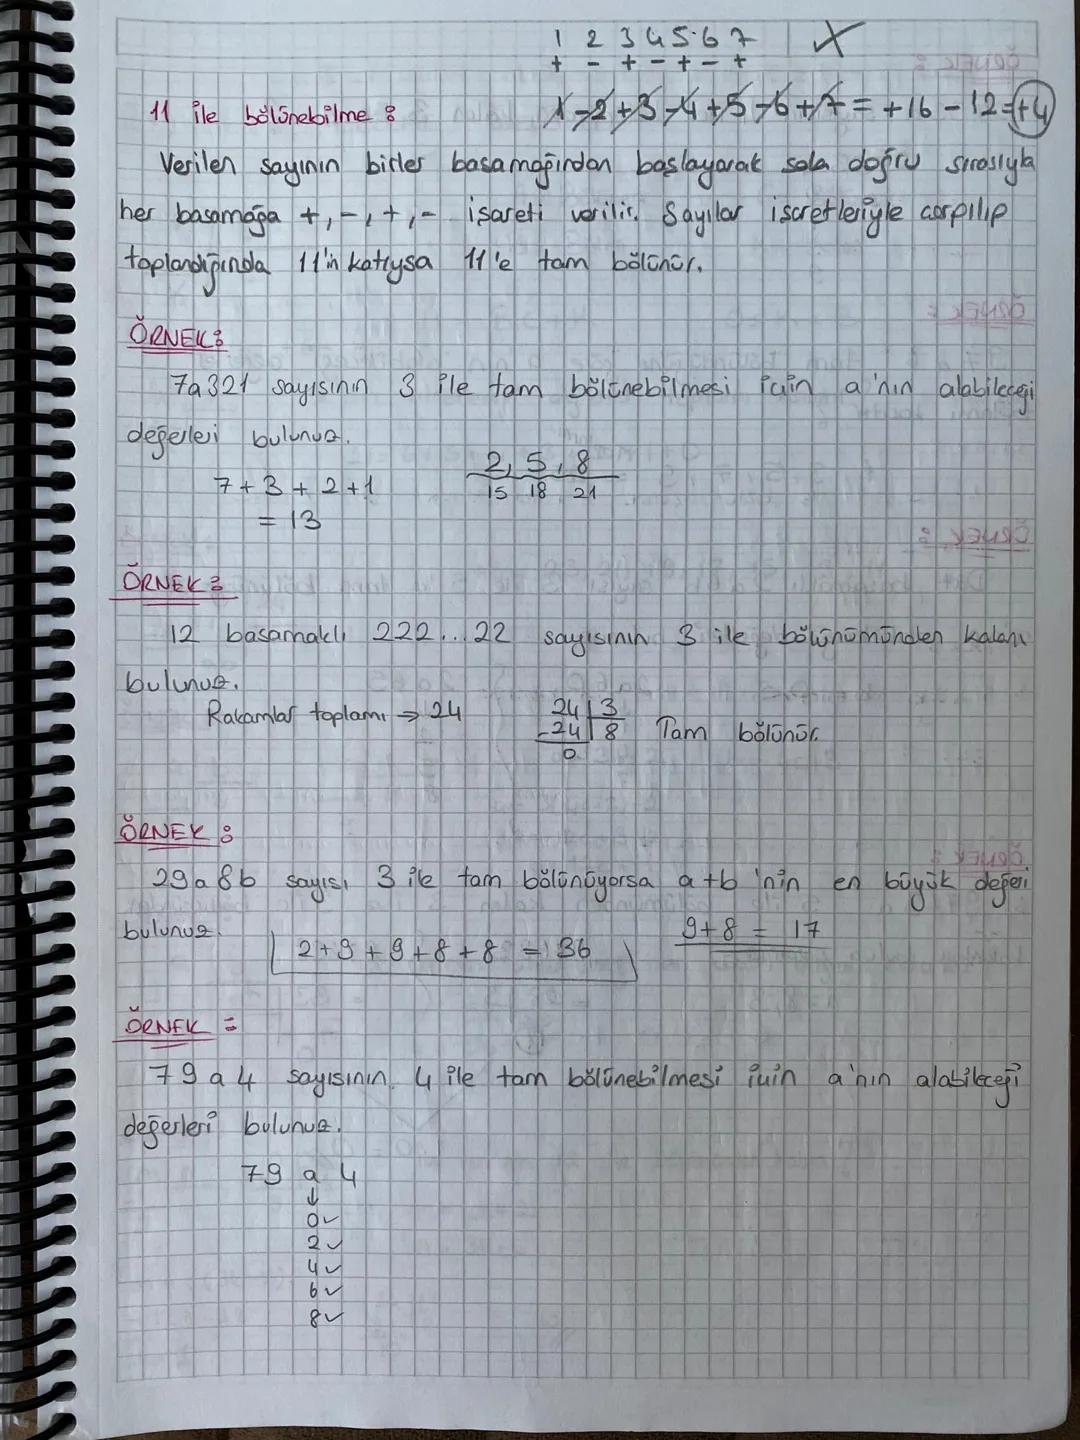 1 2 3 4 5 6 7 X
+ - + - + - +
11 ile bölünebilme :
1-2+3-4+5-6+7 = +16 - 12 = +4
Verilen sayının birler basamağından başlayarak sola doğru sırasıyla
her basamağa +, -, +, - işareti verilir. Sayılar işaretleriyle çarpılıp
toplandığında 11'in katıysa 11'e tam bölünür.
ÖRNEK:
7a321 sayısının 3 ile tam bölünebilmesi için a'nın alabileceği
değerleri bulunuz.
7+3+2+1
= 13
2, 5, 8
15 18 21
ÖRNEK:
12 basamaklı 222...22 sayısının 3 ile bölümünden kalanı
bulunuz.
Rakamlar toplamı ⇒ 24
24 3
-24 8
0
Tam bölünür.
ÖRNEK :
29a8b sayısı 3 ile tam bölünüyorsa a+b 'nin en büyük değeri
bulunuz.
2+9+9+8+8 = 36
9+8 = 17
ÖRNEK :
79a4 sayısının 4 ile tam bölünebilmesi için a'nın alabileceği
değerleri bulunuz.
79 a 4
↓
0✓
2✓
4✓
6✓
8✓